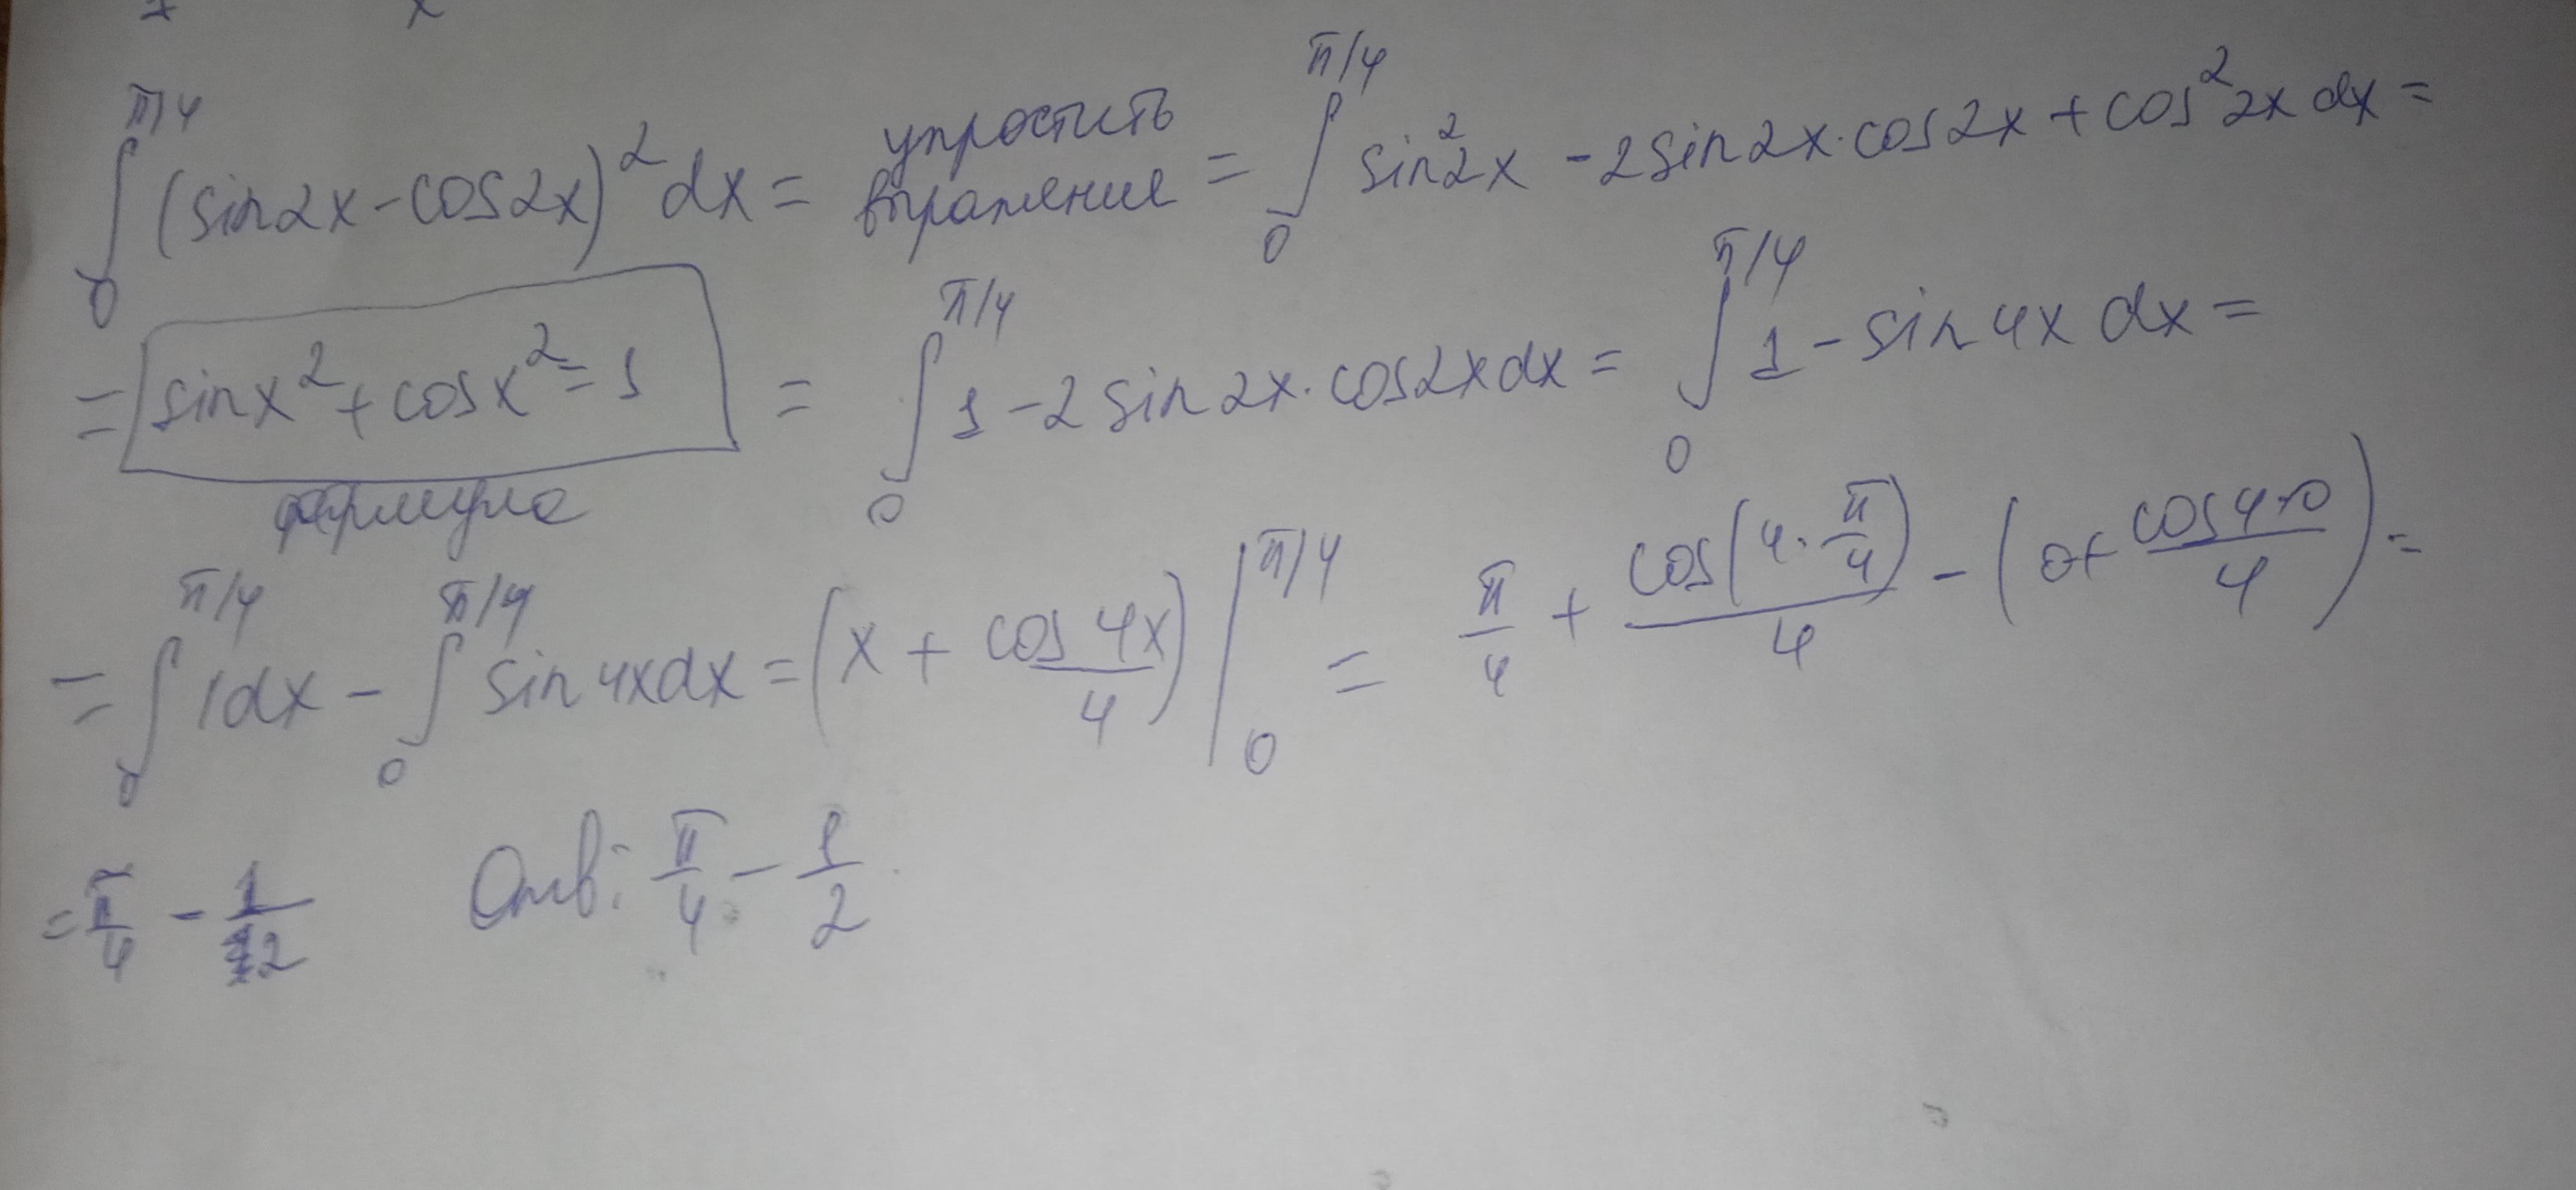 ∫₀^π/4 (sin2x-cos2x)² dx = упростить выражение = ∫₀^π/4 sin²2x - 2sin2x·cos2x + cos²2x dx =
= sinx² + cosx² = 1 = ∫₀^π/4 1 - 2 sin 2x·cos2x dx = ∫₀^π/4 1 - sin 4x dx =
формула
= ∫₀^π/4 1dx - ∫₀^π/4 sin 4x dx = (x + cos 4x/4) |₀^π/4 = π/4 + cos(4·π/4)/4 - (0 + cos4·0/4) =
= π/4 - 1/2 Отв: π/4 - 1/2